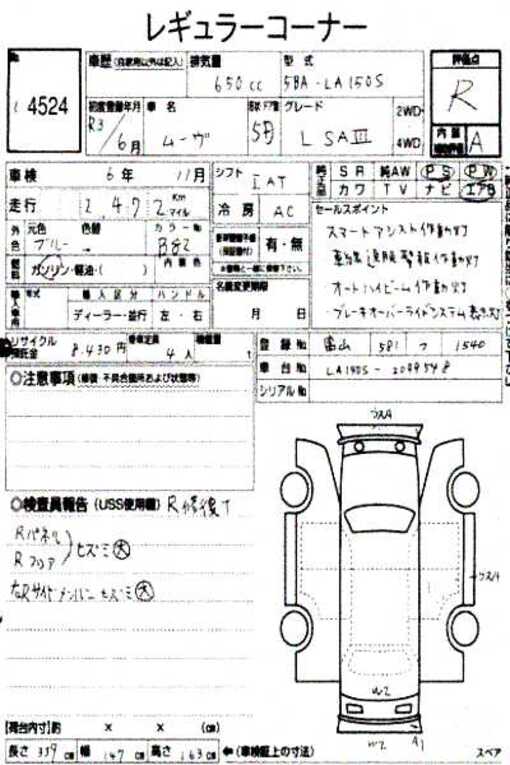 レギュラーコーナー
No
4524
車歴 (自家用以外は記入)
排気量
650 cc
型式
5BA-LA150S
評価点
R
初度登録年月
R3 / 6月
車名
ムーヴ
ドア数
5D
グレード
L SAⅢ
2WD
4WD
内装
A
車検
6年 11月
走行
2,472
Km
マイル
シフト
IAT
冷房
AC
純正品
SR
純AW
PS
PW
カワ
TV
ナビ
エアB
外色
元色
ブルー
色替
カラーNo
B82
燃料
ガソリン・軽油・( )
内装色
有・無
セールスポイント
スマートアシスト作動灯
車線逸脱警報作動灯
・オートハイビーム作動灯
・ブレーキオーバーライドシステム表示灯
輸入車用
年式
輸入区分
ハンドル
ディーラー・並行
左・右
名義変更期限
月 日
リサイクル預託金
8,430円
乗車定員
4人
積載量
t
登録No
富山 581 つ 1540
車台No
LA150S-2099548
シリアルNo
◎注意事項 (修復・不具合箇所および状態等)
◎検査員報告 (USS使用欄)
R修復大
Rパネル
Rフロア
ヒズミ大
右Rサイドメンバーヒズミ大
ウスA
ウスA
W2
W2
A1
【荷台内寸】約 × × (cm)
長さ 339 cm
幅 147 cm
高さ 163 cm
←(車検証上の寸法)
スペア